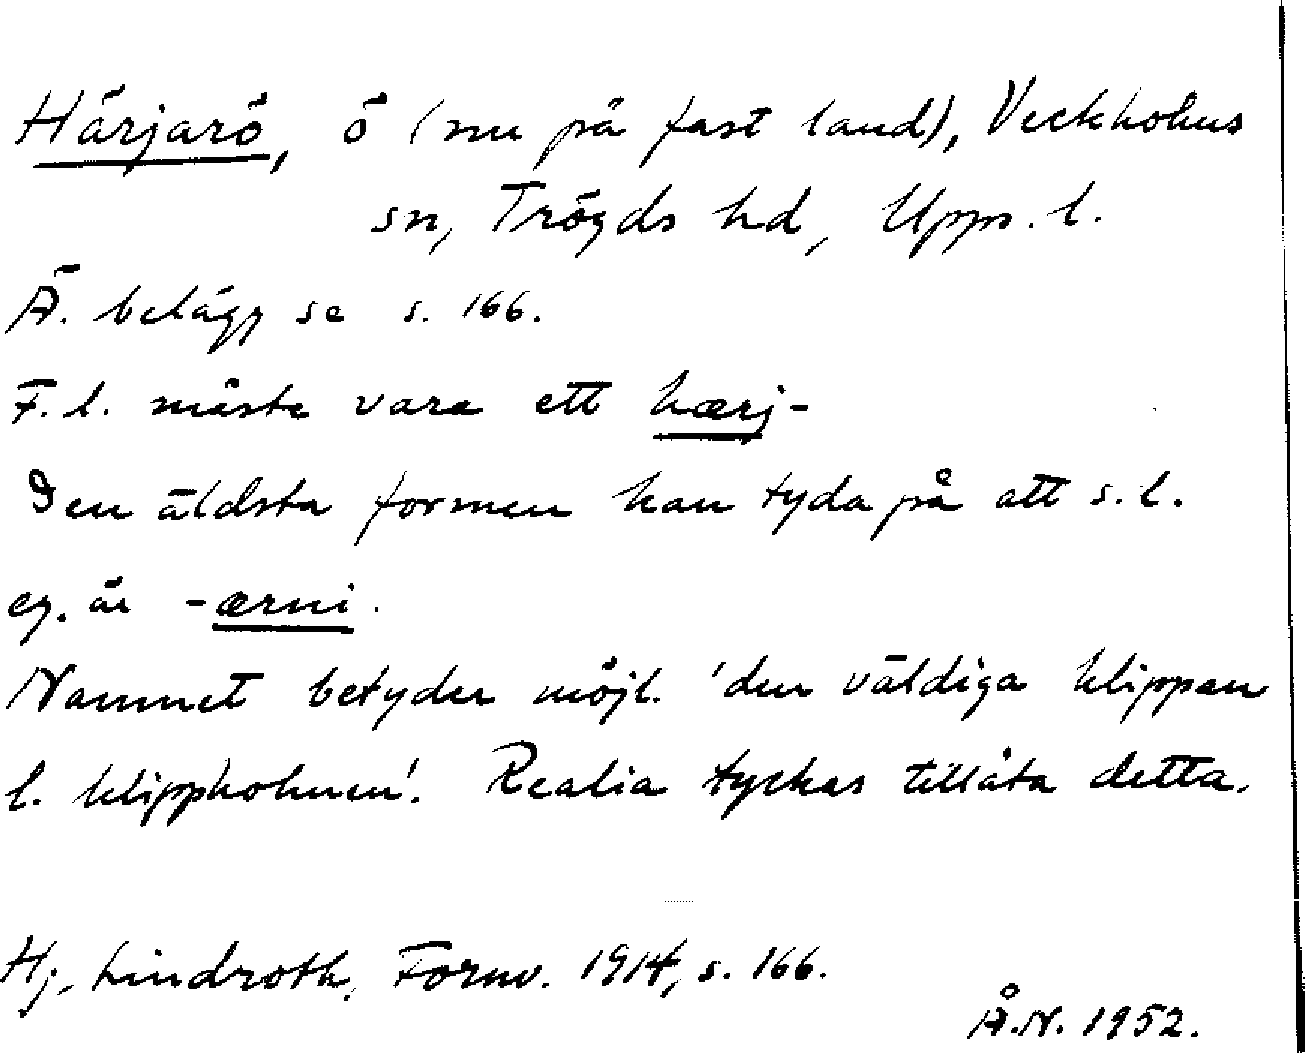 Härjarö, ö (nu på fast land), Veckholms
sn, Trögds hd, Upps. l.
Ä. belägg se s. 166.
F.l. måste vara ett hærj-
Den äldsta formen kan tyda på att s.l.
eg. är -ærni.
Namnet betyder möjl. 'den väldiga klippan
l. klippholmen'. Realia tyckas tillåta detta.
Hj. Lindroth, Fornv. 1914, s. 166.
Å.N. 1952.